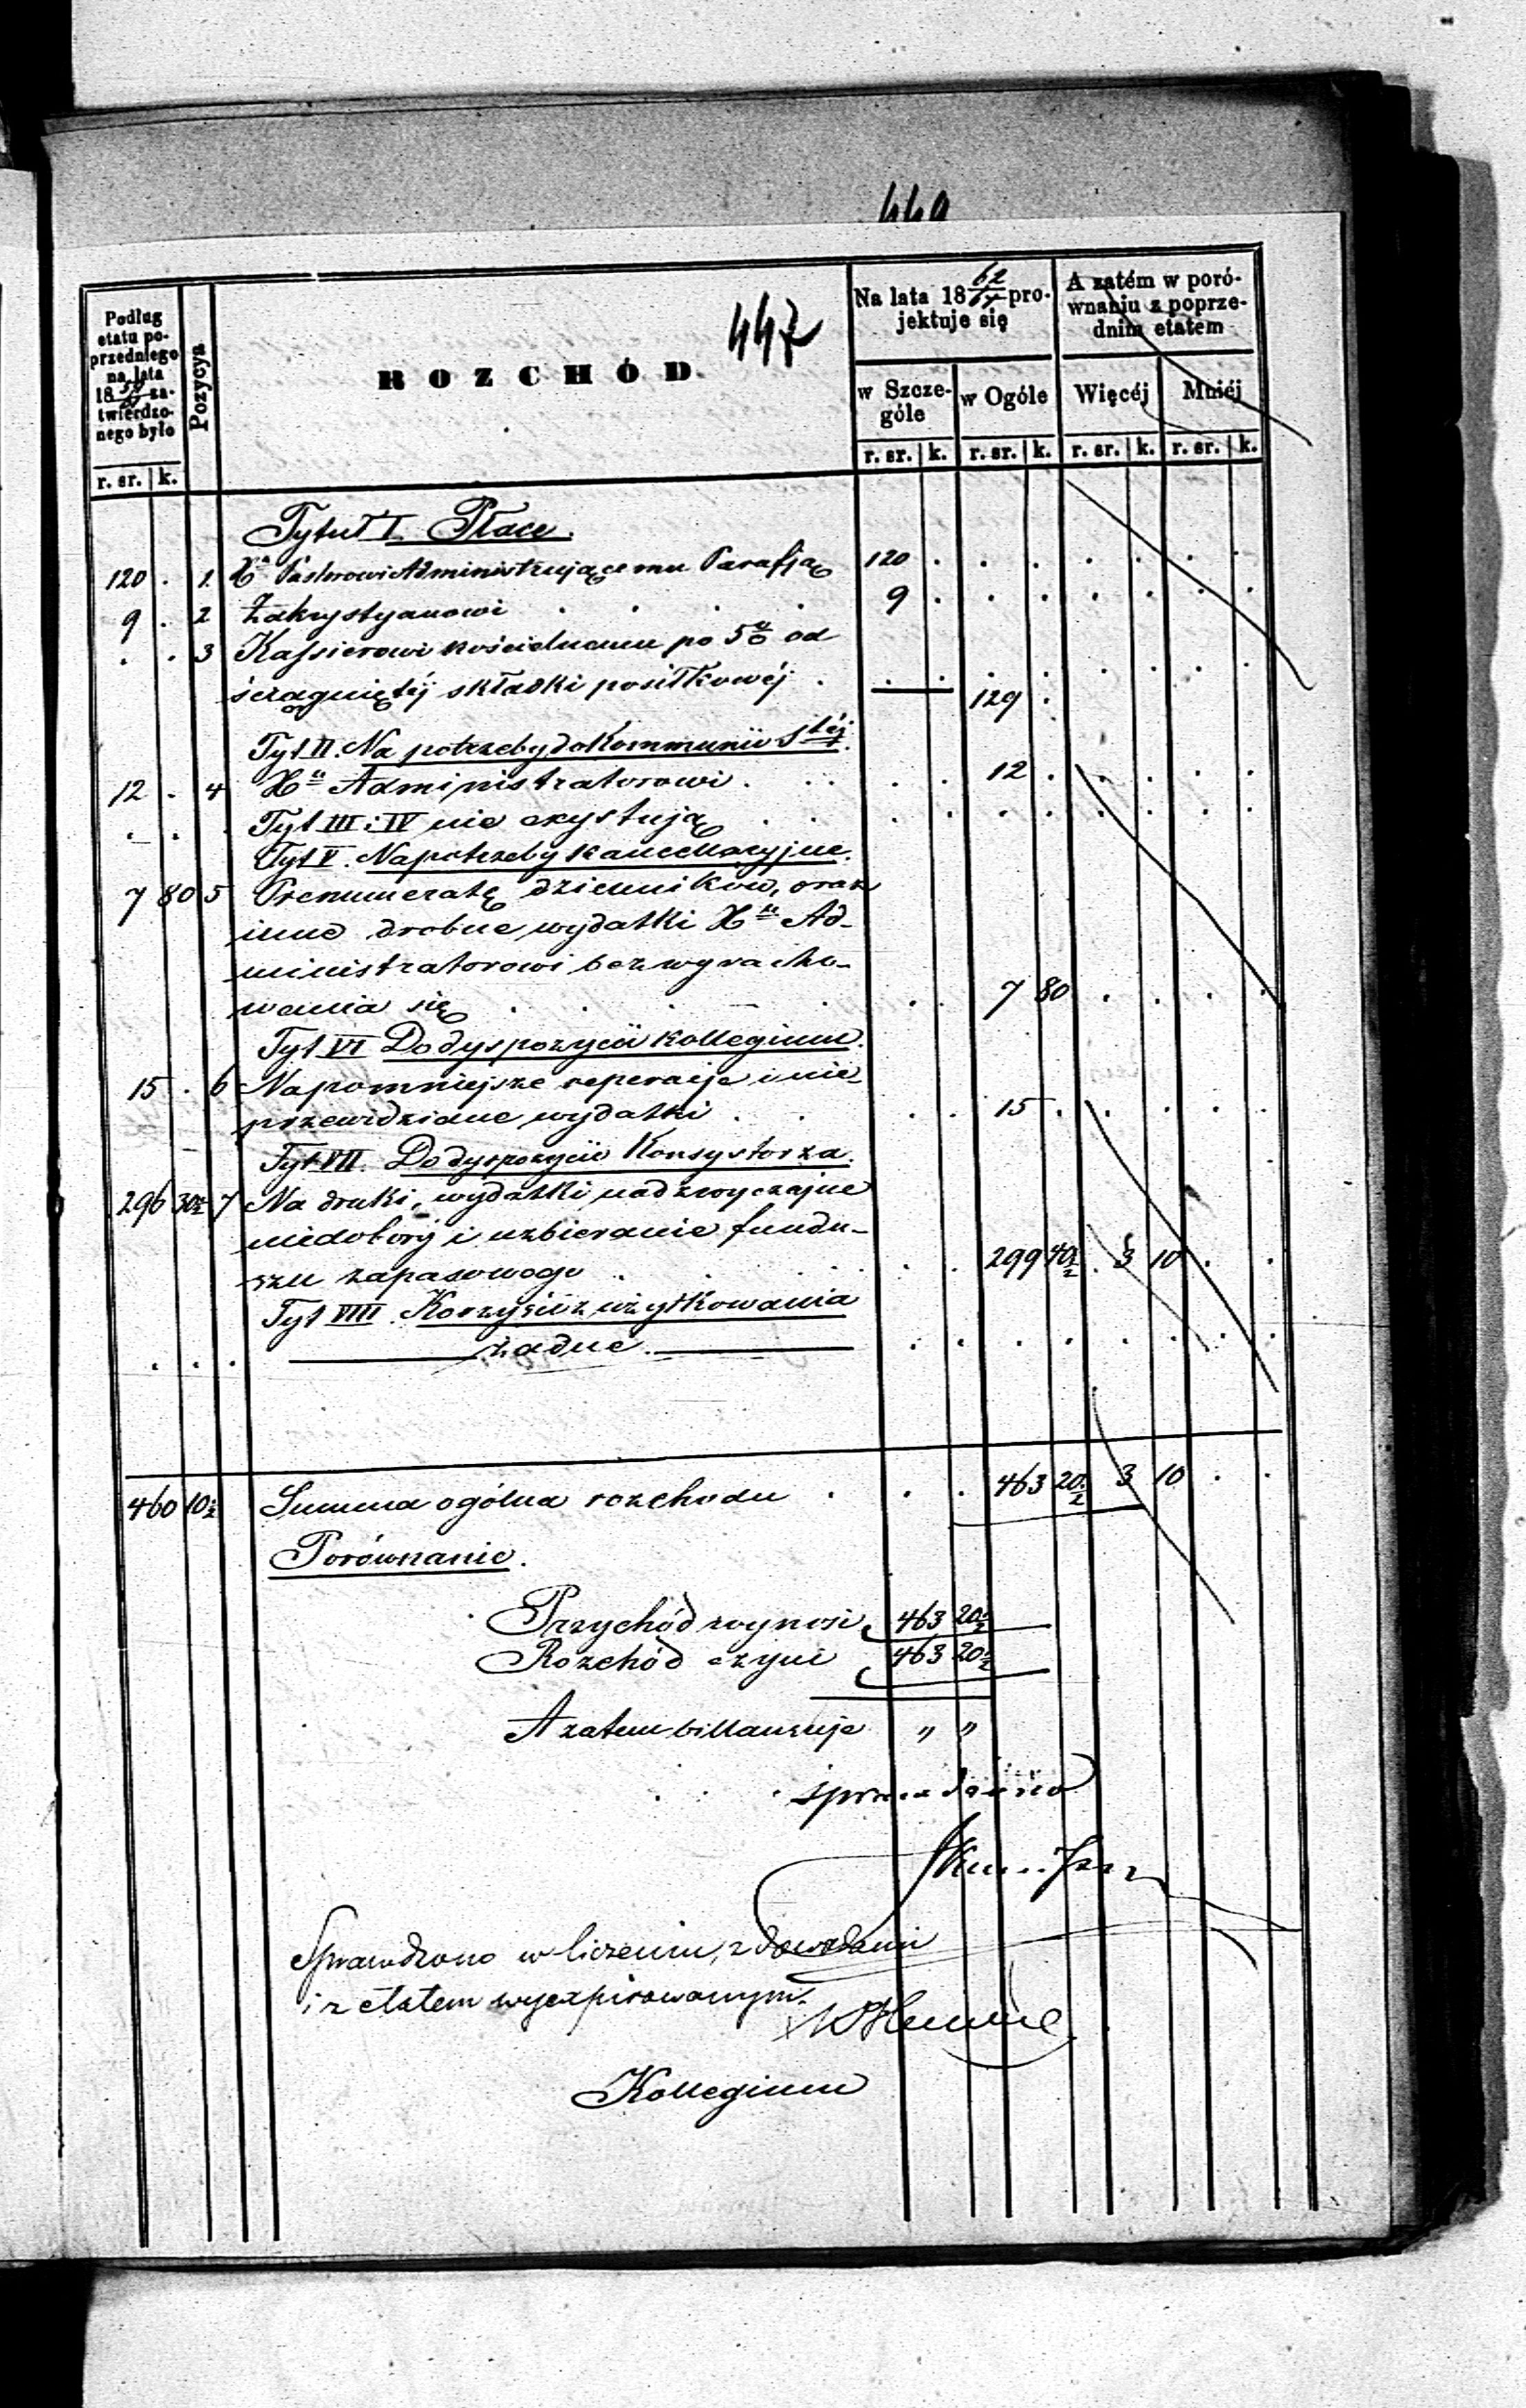 447
Podług etatu poprzedniego na lata 18 59/61 zatwierdzonego było
Pozycya
ROZCHÓD.
Na lata 18 62/64 projektuje się
A zatém w porównaniu z poprzednim etatem
w Szczególe
w Ogóle
Więcéj
Mniéj
r. sr. k. r. sr. k. r. sr. k. r. sr. k. r. sr. k.
Tytuł I. Płace.
120 . 1. Xu Pastorowi Administrującemu Parafją 120 .
9 . 2 Zakrystyanowi 9 .
. . 3 Kassierowi kościelnemu po 5% od
ściągniętéj składki posiłkowéj . 129 .
Tyt II. Na potrzeby do Kommunii Stéj.
12 . 4 Xu Administratorowi . 12 .
Tyt III i IV nie exystują
Tyt V. Na potrzeby kancellaryjne.
7 80 5 Prenumeratę dzienników, oraz
inne drobne wydatki Xu Ad-
ministratorowi bez wyracho-
wania się 7 80
Tyt VI Do dyspozycii kollegium.
15 . 6 Na pomniejsze reperacje i nie-
przewidziane wydatki . 15 .
Tyt VII. Do dyspozycii Konsystorza.
296 30½ 7 Na druki, wydatki nadzwyczajne
niedobory i uzbieranie fundu-
szu zapasowego . 299 40½ 3 10
Tyt VIII. Korzyści z użytkowania
żadne.
460 10½ Summa ogólna rozchodu . 463 20½ 3 10
Porównanie.
Przychód wynosi 463 20½
Rozchód czyni 463 20½
A zatem billansuje " "
Sprawdzono w liczeniu, z dowodami
i z etatem wyexpirowanym.
Kollegium